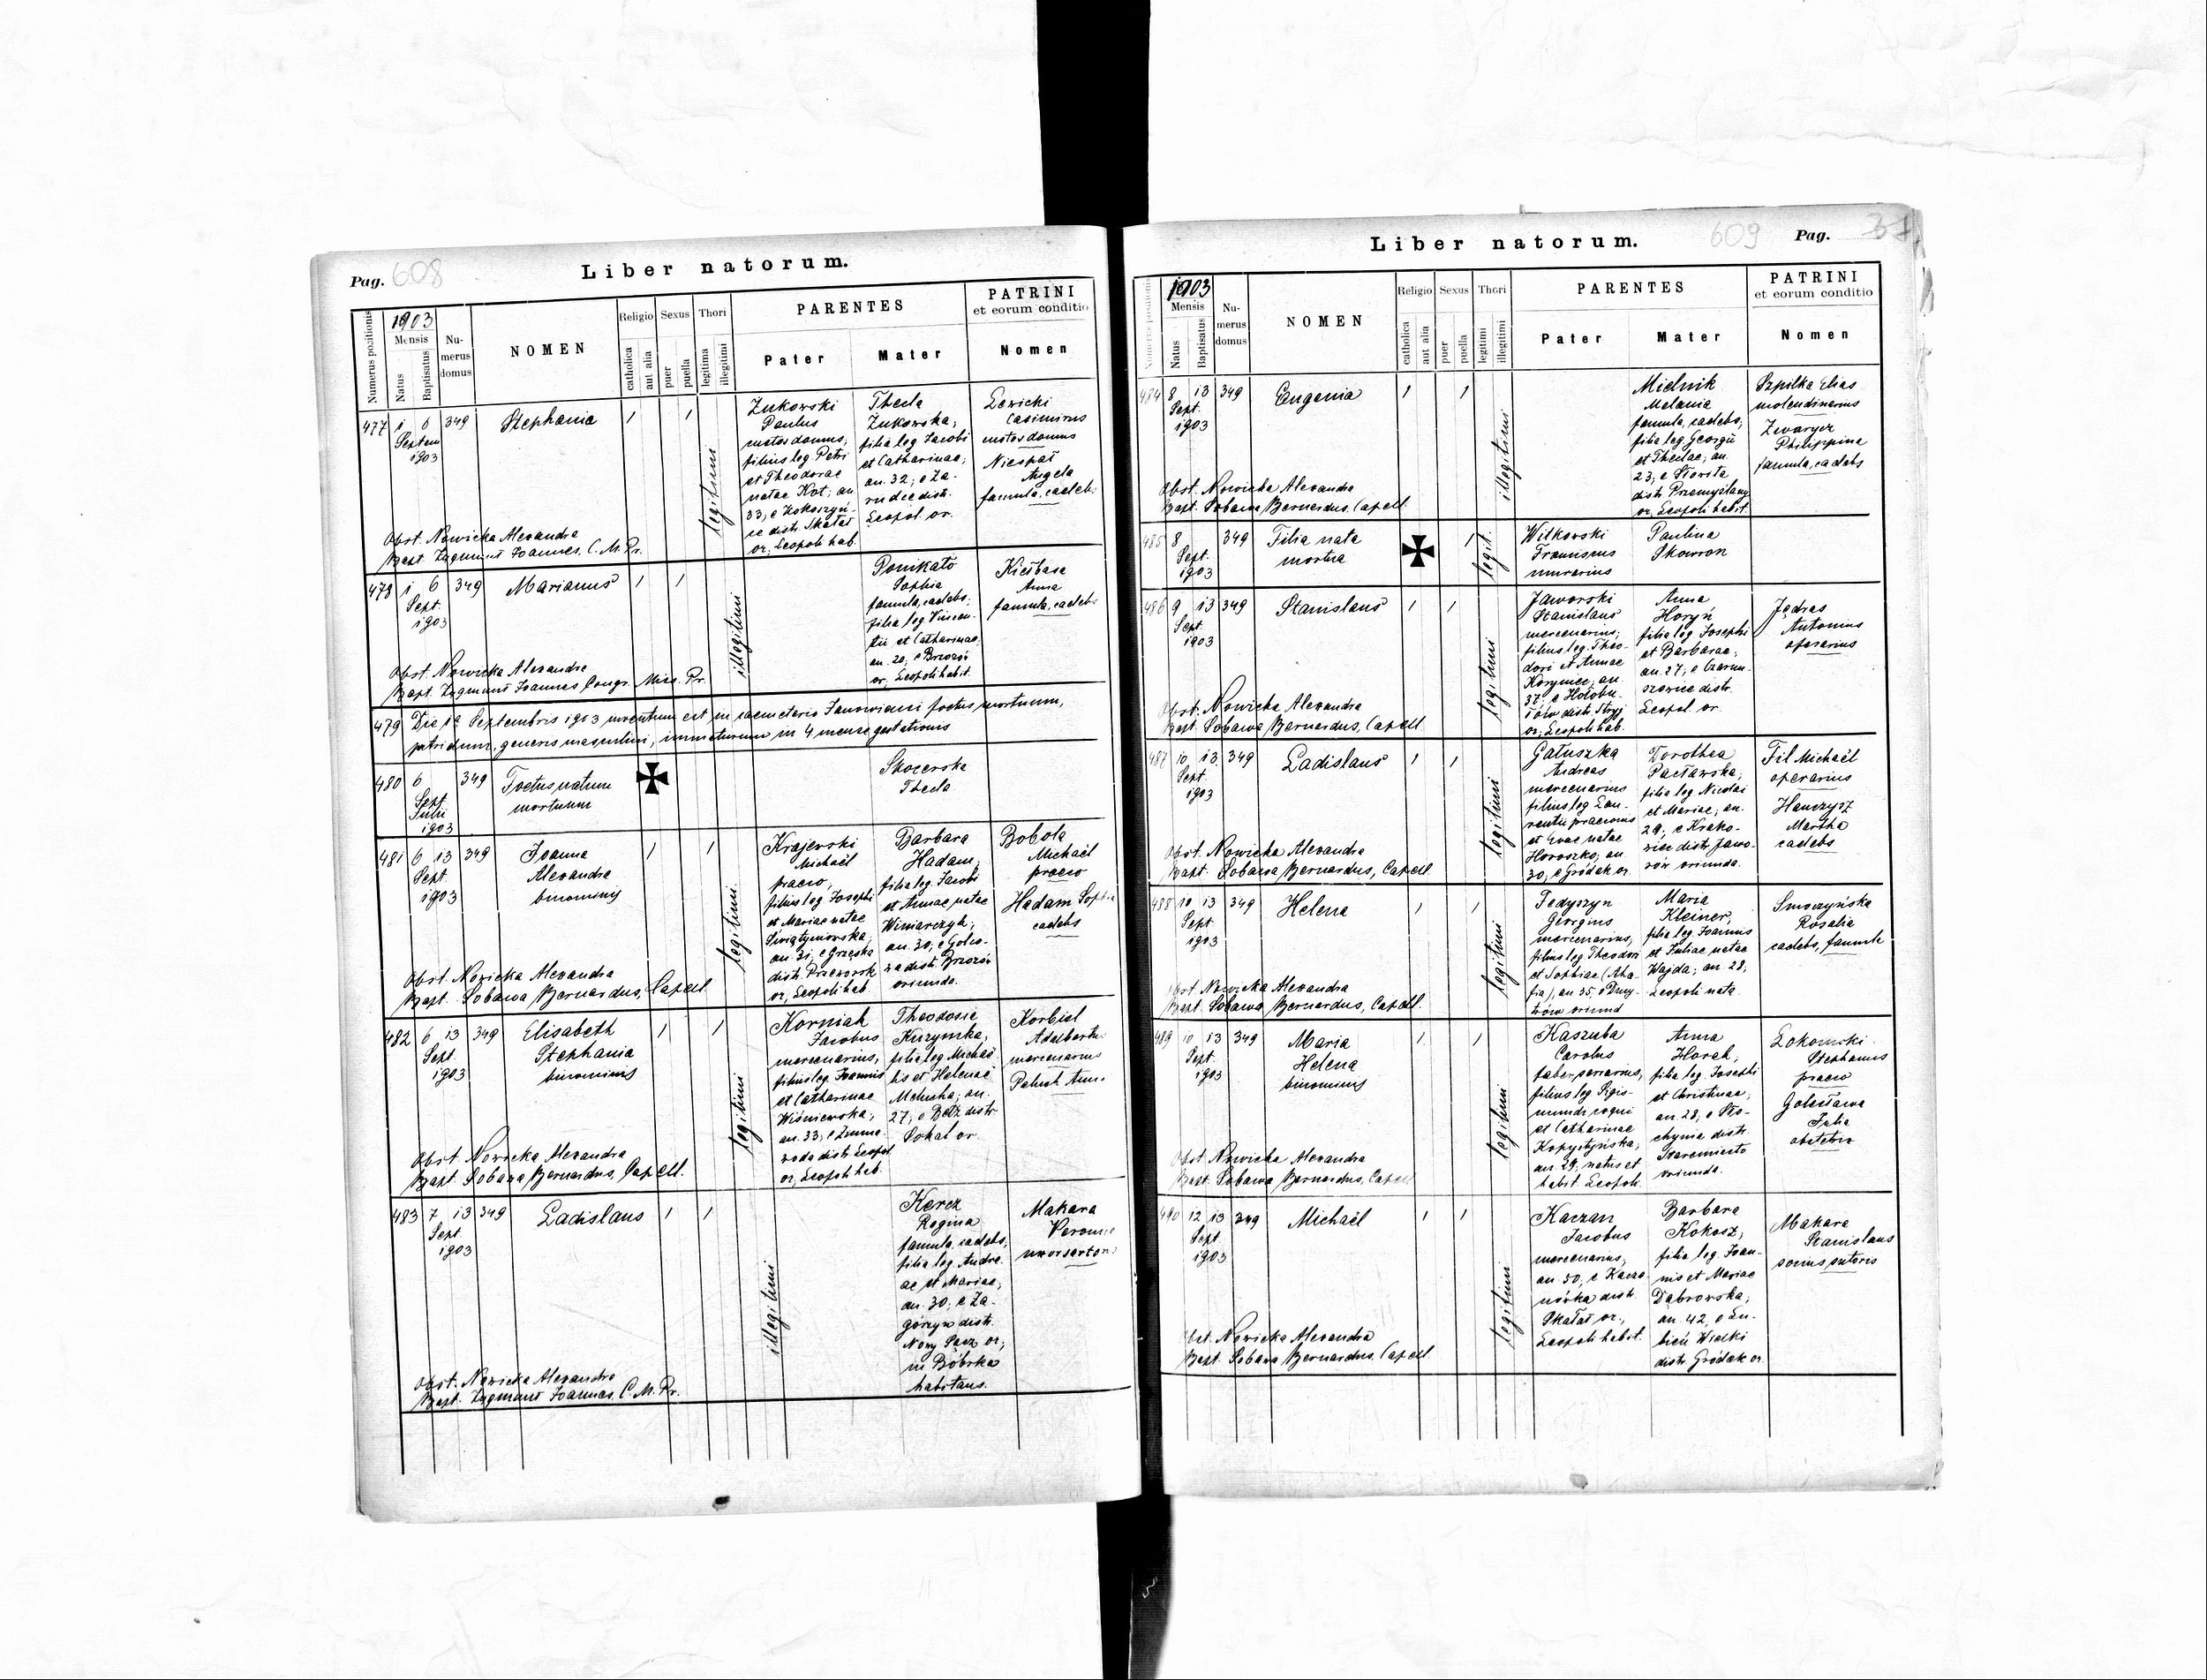 Pag. 608
Liber natorum.
Numerus positionis
1903
Mensis
Natus
Baptisatus
Numerus domus
NOMEN
Religio
catholica
aut alia
Sexus
puer
puella
Thori
legitima
illegitimi
PARENTES
Pater
Mater
PATRINI
et eorum conditio
Nomen
477 1 6 349 Stephania 1 1
Septem
1903
legitimi
Żukowski
Paulus
custos domus,
filius leg Petri
et Theodorae
natae Kot; an
33; e
ce distr. Skałat
or, Leopoli hab.
Thecla
Żukowska;
filia leg Jacobi
et Catharinae;
an. 32; e Za-
rudce distr.
Leopol. or.
Lewicki
Casimirus
custos domus
Angela
famula, caelebs
Obst. Nowicka Alexandra
Bapt. Zygmunt Joannes. C. M. Pr.
478 1 6 349 Marianus 1 1
Sept.
1903
illegitimi
Sophia
famula, caelebs;
filia leg Vincen-
tii et Catharinae,
an. 20; e Brzozów
or, Leopoli habit.
Kiełbasa
Anna
famula, caelebs
Obst. Nowicka Alexandra
Bapt. Zygmunt Joannes Congr. Miss. Pr.
479 Die Septembris 1903 inventum est in caemeterio Janowiensi foetus mortuum,
putridum, generis masculini, immaturum in 4 mense gestationis
480 6 349 Foetus natum
Sept.
Julii
1903
mortuum
Thecla
481 6 13 349 Joanna 1 1
Sept.
1903
Alexandra
binominis
legitimi
Krajewski
Michaël
praeco,
filius leg Josephi
et Mariae natae
an. 31; e Grzęska
distr. Przeworsk
or, Leopoli hab.
Barbara
Hadam,
filia leg. Jacobi
et Annae natae
Winiarczyk;
an. 30; e Golco-
wa distr. Brzozów
oriunda.
Bobola
Michaël
praeco
Hadam Sophia
caelebs
Obst. Nowicka Alexandra
Bapt. Sobawa Bernardus, Capell.
482 6 13 349 Elisabeth 1 1
Sept.
1903
Stephania
binominis
legitimi
Korniak
Jacobus
mercenarius,
filius leg. Joannis
et Catharinae
Wiśniewska;
an. 33; e Zimna-
woda distr. Leopol
or, Leopoli hab.
Theodosia
filia leg Michaë-
lis et Helenae
Melucha; an.
27; e Bełz distr
Sokal or.
Korbiel
Adalbertus
mercenarius
Obst. Nowicka Alexandra
Bapt. Sobawa Bernardus, Capell.
483 7 13 349 Ladislaus 1 1
Sept.
1903
illegitimi
Kercz
Regina
famula, caelebs,
filia leg Andre-
ae et Mariae;
an. 30; e Za-
górzyn distr.
Nowy Sącz or;
in Bóbrka
habitans.
Makara
uxor sartoris
Obst. Nowicka Alexandra
Bapt. Zygmunt Joannes. C. M. Pr.
Liber natorum.
609
Pag.
Numerus positionis
1903
Mensis
Natus
Baptisatus
Numerus domus
NOMEN
Religio
catholica
aut alia
Sexus
puer
puella
Thori
legitimi
illegitimi
PARENTES
Pater
Mater
PATRINI
et eorum conditio
Nomen
484 8 13 349 Eugenia 1 1
Sept.
1903
illegitimi
Mielnik
Melania
famula, caelebs;
filia leg Georgii
et Theclae; an.
23; e
distr Przemyślany
or, Leopoli habit.
Szpilka Elias
molendinarius
Zwarycz
Philippina
famula, caelebs
Obst. Nowicka Alexandra
Bapt. Sobawa Bernardus, Capell.
485 8 349 Filia nata 1
Sept.
1903
mortua
legit.
Witkowski
Franciscus
murarius
Paulina
Skowron
486 9 13 349 Stanislaus 1 1
Sept.
1903
legitimi
Jaworski
Stanislaus
mercenarius;
filius leg. Theo-
dori et Annae
an.
37; e Hołobu-
tów distr. Stryj
or; Leopoli hab.
Anna
Horyń
filia leg Josephi
et Barbarae;
an. 27; e
distr.
Leopol. or.
Jędras
Antonius
operarius
Obst. Nowicka Alexandra
Bapt. Sobawa Bernardus, Capell.
487 10 13 349 Ladislaus 1 1
Sept
1903
legitimi
Gałuszka
Andreas
mercenarius
filius leg Lau-
rentii praeconis
et Evae natae
Horoszko; an.
30; e Gródek or
Dorothea
Pacławska;
filia leg Nicolai
et Mariae; an.
29; e Krako-
wiec distr. Jawo-
rów oriunda.
Fil Michaël
operarius
Hawrysz
Martha
caelebs
Obst. Nowicka Alexandra
Bapt. Sobawa Bernardus, Capell.
488 10 13 349 Helena 1 1
Sept
1903
legitimi
Fedyszyn
Georgius
mercenarius,
filius leg Theodori
et Sophiae (Aha-
fia), an 35, e
oriund
Maria
Kleiner,
filia leg Joannis
et Juliae natae
Wajda; an. 28,
Leopoli nata.
Smoczyńska
Rosalia
caelebs, famula
Obst. Nowicka Alexandra
Bapt. Sobawa Bernardus, Capell.
489 10 13 349 Maria 1 1
Sept.
1903
Helena
binominis
legitimi
Kaszuba
Carolus
faber serrarius,
filius leg Sigis-
mundi coqui
et Catharinae
Kopystyńska;
an. 29; natus et
habit. Leopoli.
Anna
Horak,
filia leg. Josephi
et Christinae;
an. 28; e
distr.
Staremiasto
oriunda.
Stephanus
praeco
Julia
obstetrix
Obst Nowicka Alexandra
Bapt. Sobawa Bernardus, Capell
490 12 13 349 Michaël 1 1
Sept.
1903
legitimi
Kaczan
Jacobus
mercenarius,
an. 50; e Kacza-
nówka distr.
Skałat or.,
Leopoli habit.
Barbara
Kokosz,
filia leg. Joan-
nis et Mariae
Dąbrowska;
an. 42, e Lu-
bień Wielki
distr. Gródek or.
Makara
Stanislaus
socius sutoris
Obst. Nowicka Alexandra
Bapt. Sobawa Bernardus. Capell.